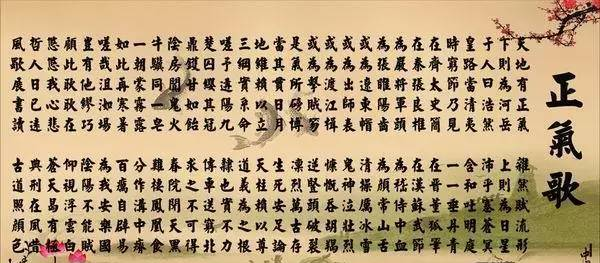 正氣歌
天地有正氣 雜然賦流形
下則為河岳 上則為日星
于人曰浩然 沛乎塞蒼冥
皇路當清夷 含和吐明庭
時窮節乃見 一一垂丹青
在齊太史簡 在晉董狐筆
在秦張良椎 在漢蘇武節
為嚴將軍頭 為嵇侍中血
為張睢陽齒 為顏常山舌
或為遼東帽 清操厲冰雪
或為出師表 鬼神泣壯烈
或為渡江楫 慷慨吞胡羯
或為擊賊笏 逆豎頭破裂
是氣所磅礴 凜烈萬古存
當其貫日月 生死安足論
地維賴以立 天柱賴以尊
三綱實系命 道義為之根
嗟予遘陽九 隸也實不力
楚囚纓其冠 傳車送窮北
鼎鑊甘如飴 求之不可得
陰房闃鬼火 春院閟天黑
牛驥同一皂 雞棲鳳凰食
一朝蒙霧露 分作溝中瘠
如此再寒暑 百癘自辟易
嗟哉沮洳場 為我安樂國
豈有他繆巧 陰陽不能賊
顧此耿耿在 仰視浮雲白
悠悠我心悲 蒼天曷有極
哲人日已遠 典刑在夙昔
風檐展書讀 古道照顏色